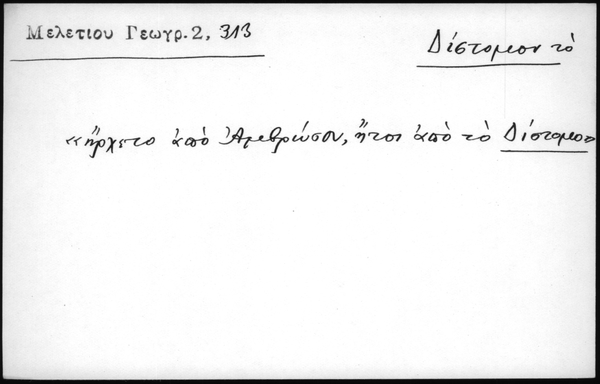 Μελετίου Γεωγρ. 2, 313
Δίστομον τὸ
«ἤρχετο ἀπὸ Ἀμβρώσου, ἤτοι ἀπὸ τὸ Δίστομο»